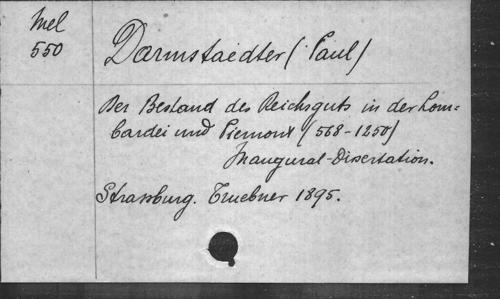 Mel
550
Darmstaedter (Paul)
Der Bestand des Reichsguts in der Lom=
bardei und Piemont (568-1250)
Inaugural-Dissertation.
Strassburg. Truebner 1895.